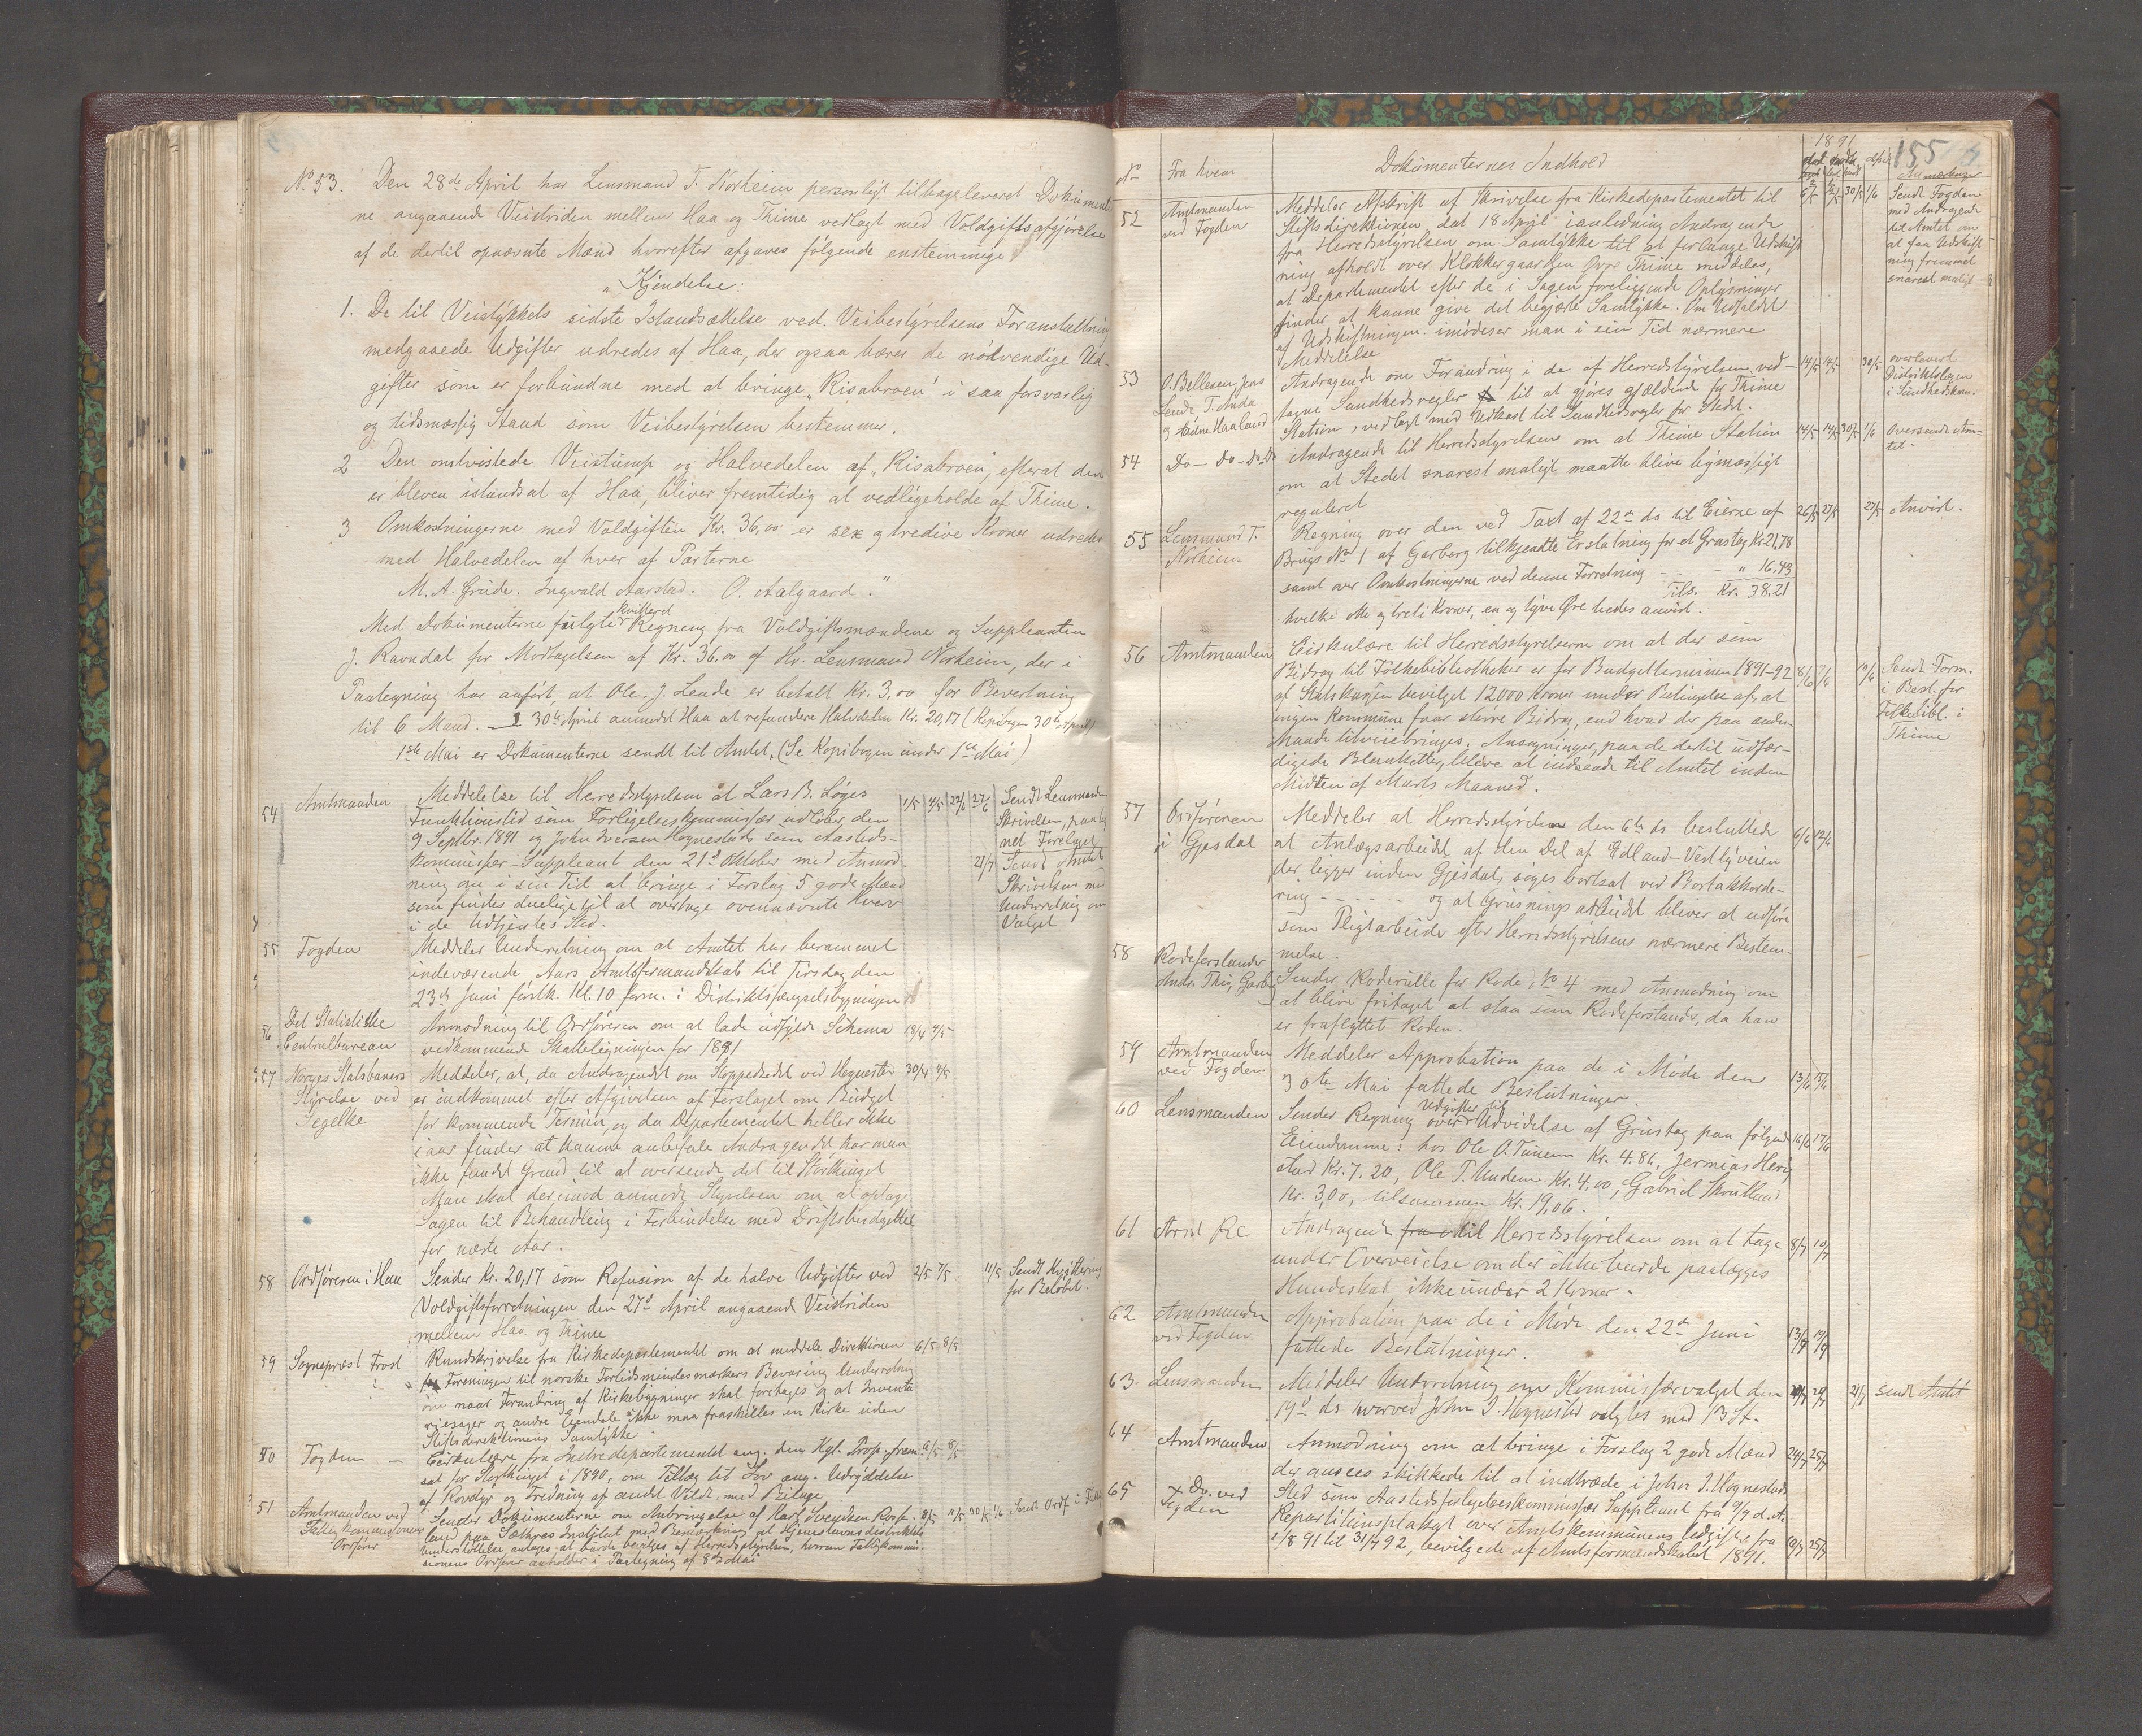 No 53. Den 28de April har Lensmand T. Norheim personligt tilbageleveret Dokumenter-
ne angaaende Veistriden mellem Haa og Thime vedlagt med Voldgiftsafgjørelse
af de dertil opnævnte Mænd hvorefter afgaves følgende enstemmige
"Kjendelse:
1. De til Veistykkets sidste Istandsættelse ved Veibestyrelsens Foranstaltning
medgaaede Udgifter udredes af Haa, der ogsaa bærer de nødvendige Ud-
gifter som er forbundne med at bringe "Risabroen" i saa forsvarlig
og tidsmæssig Stand som Veibestyrelsen bestemmer.
2 Den omtvistede Veistump og Halvedelen af "Risabroen", efterat den
er bleven istandsat af Haa, bliver fremtidig at vedligeholde af Thime.
3 Omkostningerne med Voldgiften Kr. 36,00 er sex og tredive Kroner udredes
med Halvedelen af hver af Parterne
M. A. Grude. Ingvald Aarstad. O. Aalgaard."
Med Dokumenterne fulgte kvitteret Regning fra Voldgiftsmændene og Suppleanten
J. Ravndal for Modtagelsen af Kr. 36,00 af Hr. Lensmand Norheim, der i
Paategning har anført, at Ole J. Lende er betalt Kr. 3,00 for Bevertning
til 6 Mand. 30te April anmodet Haa at refundere Halvdelen Kr. 20,17 (Kopibogen 30te April)
1ste Mai er Dokumenterne sendt til Amtet. (Se Kopibogen under 1ste Mai)
54 Amtmanden Meddelelse til Herredsstyrelsen at Lars B. Løges 1/5 4/5 22/6 27/6 Sendt Lensmanden
Funktionstid som Forligelseskommissær udløber den Skrivelsen, paateg
9 Septbr. 1891 og John Iversen Hognestads som Aasteds- net Forslaget
kommissær-Suppleant den 21de Oktober med Anmod- 21/7 Sendt Amtet
ning om i sin Tid at bringe i Forslag 5 gode Mænd Skrivelsen med
som findes duelige til at overtage ovennævnte Hverv Underretning om
i de Udtjentes Sted. Valget
55 Fogden Meddeler Underretning om at Amtet har berammet
indeværende Aars Amtsformandskab til Tirsdag den
23de Juni førstk. Kl. 10 form. i Distriktsfængselsbygningen
56 Det Statistiske Anmodning til Ordføreren om at lade udfylde Schema 18/4 4/5
Centralbureau vedkommende Skatteligningen for 1891
57 Norges Statsbaners Meddeler, at, da Andragendet om Stoppested ved Hognestad 30/4 4/5
Styrelse ved er indkommet efter Afgivelsen af Forslaget om Budget
Segelke for kommende Termin, og da Departementet heller ikke
iaar finder at kunne anbefale Andragendet har man
ikke fundet Grund til at oversende det til Storthinget
Man skal derimod anmode Styrelsen om at optage
Sagen til Behandling i Forbindelse med Driftsbudgettet
for næste Aar.
58 Ordføreren i Haa Sender Kr. 20,17 som Refusion af de halve Udgifter ved 2/5 7/5 11/5 Sendt Kvittering
Voldgiftsforretningen den 27de April angaaende Veistriden for Beløbet.
mellem Haa og Thime
59 Sognepræst Frost Rundskrivelse fra Kirkedepartementet om at meddele Direktionen 6/5 8/5
for Foreningen til norske Fortidsmindesmærkers Bevaring Underretning
om naar Forandring af Kirkebygninger skal foretages og at Inventa
riesager og andre Eiendele ikke maa fraskilles en Kirke uden
Stiftsdirektionens Samtykke
50 Fogden Cirkulære fra Indredepartementet ang. den Kgl. Prop. frem- 6/5 8/5
sat for Storthinget i 1890, om Tillæg til Lov ang. Udryddelse
af Rovdyr og Fredning af andet Vildt, med Bilage
51 Amtmanden ved Sender Dokumenterne om Anbringelse af Karl Svendsen 8/5 11/5 30/5 1/6 Sendt Ordf. i
Fattigkommissionens land paa Sæthres Institut med Bemærkning at Hjemstavnsdistriktets
Ordfører Understøttelse antages at burde bevilges af Herredsstyrelsen, hvorom Fattigkommis-
sionens Ordfører anholder i Paategning af 8de Mai
1891 155
No Fra hvem Dokumenternes Indhold Anmærkninger
52 Amtmanden Meddeler Afskrift af Skrivelse fra Kirkedepartementet til 30/5 1/6 Sendt Fogden
ved Fogden Stiftsdirektionen, dat 18 April i anledning Andragende med Andragende
fra Herredsstyrelsen om Samtykke til at forlange Udskift til Amtet om
ning afholdt over Klokkergaarden Øvre Thime meddeles, at faa Udskift-
at Departementet efter de i Sagen foreliggende Oplysninger ning fremmet
finder at kunne give det begjærte Samtykke. Om Udfaldet snarest muligt
af Udskiftningen imødeser man i sin Tid nærmere
Meddelelse
53 O. Bellesen, Jens Andragende om Forandring i de af Herredsstyrelsen ved- 14/5 14/5 30/5 overlevert
Lende, T. Anda tagne Sundhedsregler til at gjøres gjældende for Thime Distriktslægen
og Haaland Station, vedlagt med Udkast til Sundhedsregler for Stedet. i Sundhedskom.
54 Do – Do – Do Do Andragende til Herredsstyrelsen om at Thime Station 14/5 14/5 30/5 1/6 Oversendt Am-
om at Stedet snarest muligt maatte blive bymæssigt tet
reguleret
55 Lensmand T. Regning over den ved Taxt af 22de ds til Eierne af 26/5 27/5 27/5 Anvist.
Norheim Brugs No 1 af Garborg tilkjendte Erstatning for et Grustag Kr 21,78
samt over Omkostningerne ved denne Forretning - - - " 16.43
Tils. Kr. 38,21
hvilke otte og treti Kroner, en og tyve Øre bedes anvist.
56 Amtmanden Cirkulære til Herredsstyrelserne om at der som
Bidrag til Folkebibliotheker er for Budgetterminen 1891-92 8/6 9/6 10/6 Sendt Form.
af Statskassen bevilget 12000 Kroner under Betingelse af, at i Best. for
ingen Kommune faar større Bidrag, end hvad der paa anden Folkebibl. i
Maade tilveiebringes. Ansøgninger, paa de dertil udfær- Thime
digede Blanketter, bliver at indsende til Amtet inden
Midten af Marts Maaned.
57 Ordføreren Meddeler at Herredsstyrelsen den 6te ds besluttede 6/6 12/6
i Gjesdal at Anlægsarbeidet af den Del af Edland-Vestlyveien
der ligger inden Gjesdal, søges bortsat ved Bortakkorde-
ring - - - - - - og at Grusningsarbeidet bliver at udføre
som Pligtarbeide efter Herredsstyrelsens nærmere Bestem-
melse.
58 Rodeforstander Sender Roderulle for Rode No 4 med Anmodning om
Andr. Thu, Garb. at blive fritaget at staa som Rodeforstander, da han
er fraflyttet Roden.
59 Amtmanden Meddeler Approbation paa de i Møde den 13/6 15/6
ved Fogden 30te Mai fattede Beslutninger.
60 Lensmanden Sender Regning over Udgifter til Udvidelse af Grustag paa følgende 16/6 17/6
Eiendomme: hos Ole O. Tunem Kr. 4.86, Jermias Herig
stad Kr. 7.20, Ole T. Undem Kr. 4,00, Gabriel Skrutland
Kr. 3,00, tilsammen Kr. 19,06.
61 Arvid Re Andragende til Herredsstyrelsen om at tage 8/7 10/7
under Overveielse om der ikke burde paalægges
Hundeskat, ikke under 2 Kroner.
62 Amtmanden Approbation paa de i Møde den 22de Juni 13/7 19/7
ved Fogden fattede Beslutninger.
63 Lensmanden Meddeler Underretning om Kommissærvalget den 21/7 sendt Amtet
19de ds hvorved John I. Hognestad valgtes med 13 St.
64 Amtmanden Anmodning om at bringe i Forslag 2 gode Mænd 24/7 25/7
der ansees skikkede til at indtræde i John I. Hognestads
Sted som Aastedsforligelseskommissær Suppleant fra d. A.
65 Do. ved Repartitionsplakat over Amtskommunens Udgifter fra
Fogden 1/8 91 til 31/7 92, bevilgede af Amtsformandskabet 1891. 25/7